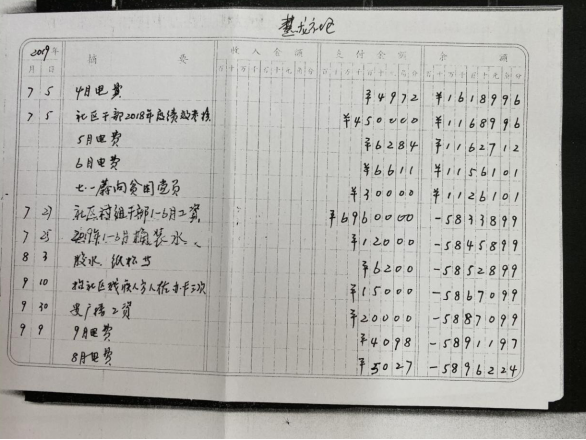 慧龙社区
2019年 摘要 收入金额 支付金额 余额
月 日 百十万千百十元角分 百十万千百十元角分 百十万千百十元角分
7 5 4月电费 ¥4972 ¥1618996
7 5 社区干部2018年度绩效考核 ¥450000 ¥1168996
5月电费 ¥6284 ¥1162712
6月电费 ¥6611 ¥1156101
七一慰问贫困党员 ¥30000 ¥1126101
7 23 社区村组干部1-6月工资 ¥6960000 -5833899
7 25 2019年1-6月桶装水 ¥12000 -5845899
8 3 胶水、纸杯 ¥6200 -5852899
9 10 社区残疾人 办卡三次 ¥15000 -5867099
9 30 广播工资 ¥20000 -5887099
9 9 9月电费 ¥4098 -5891197
8月电费 ¥5027 -5896224